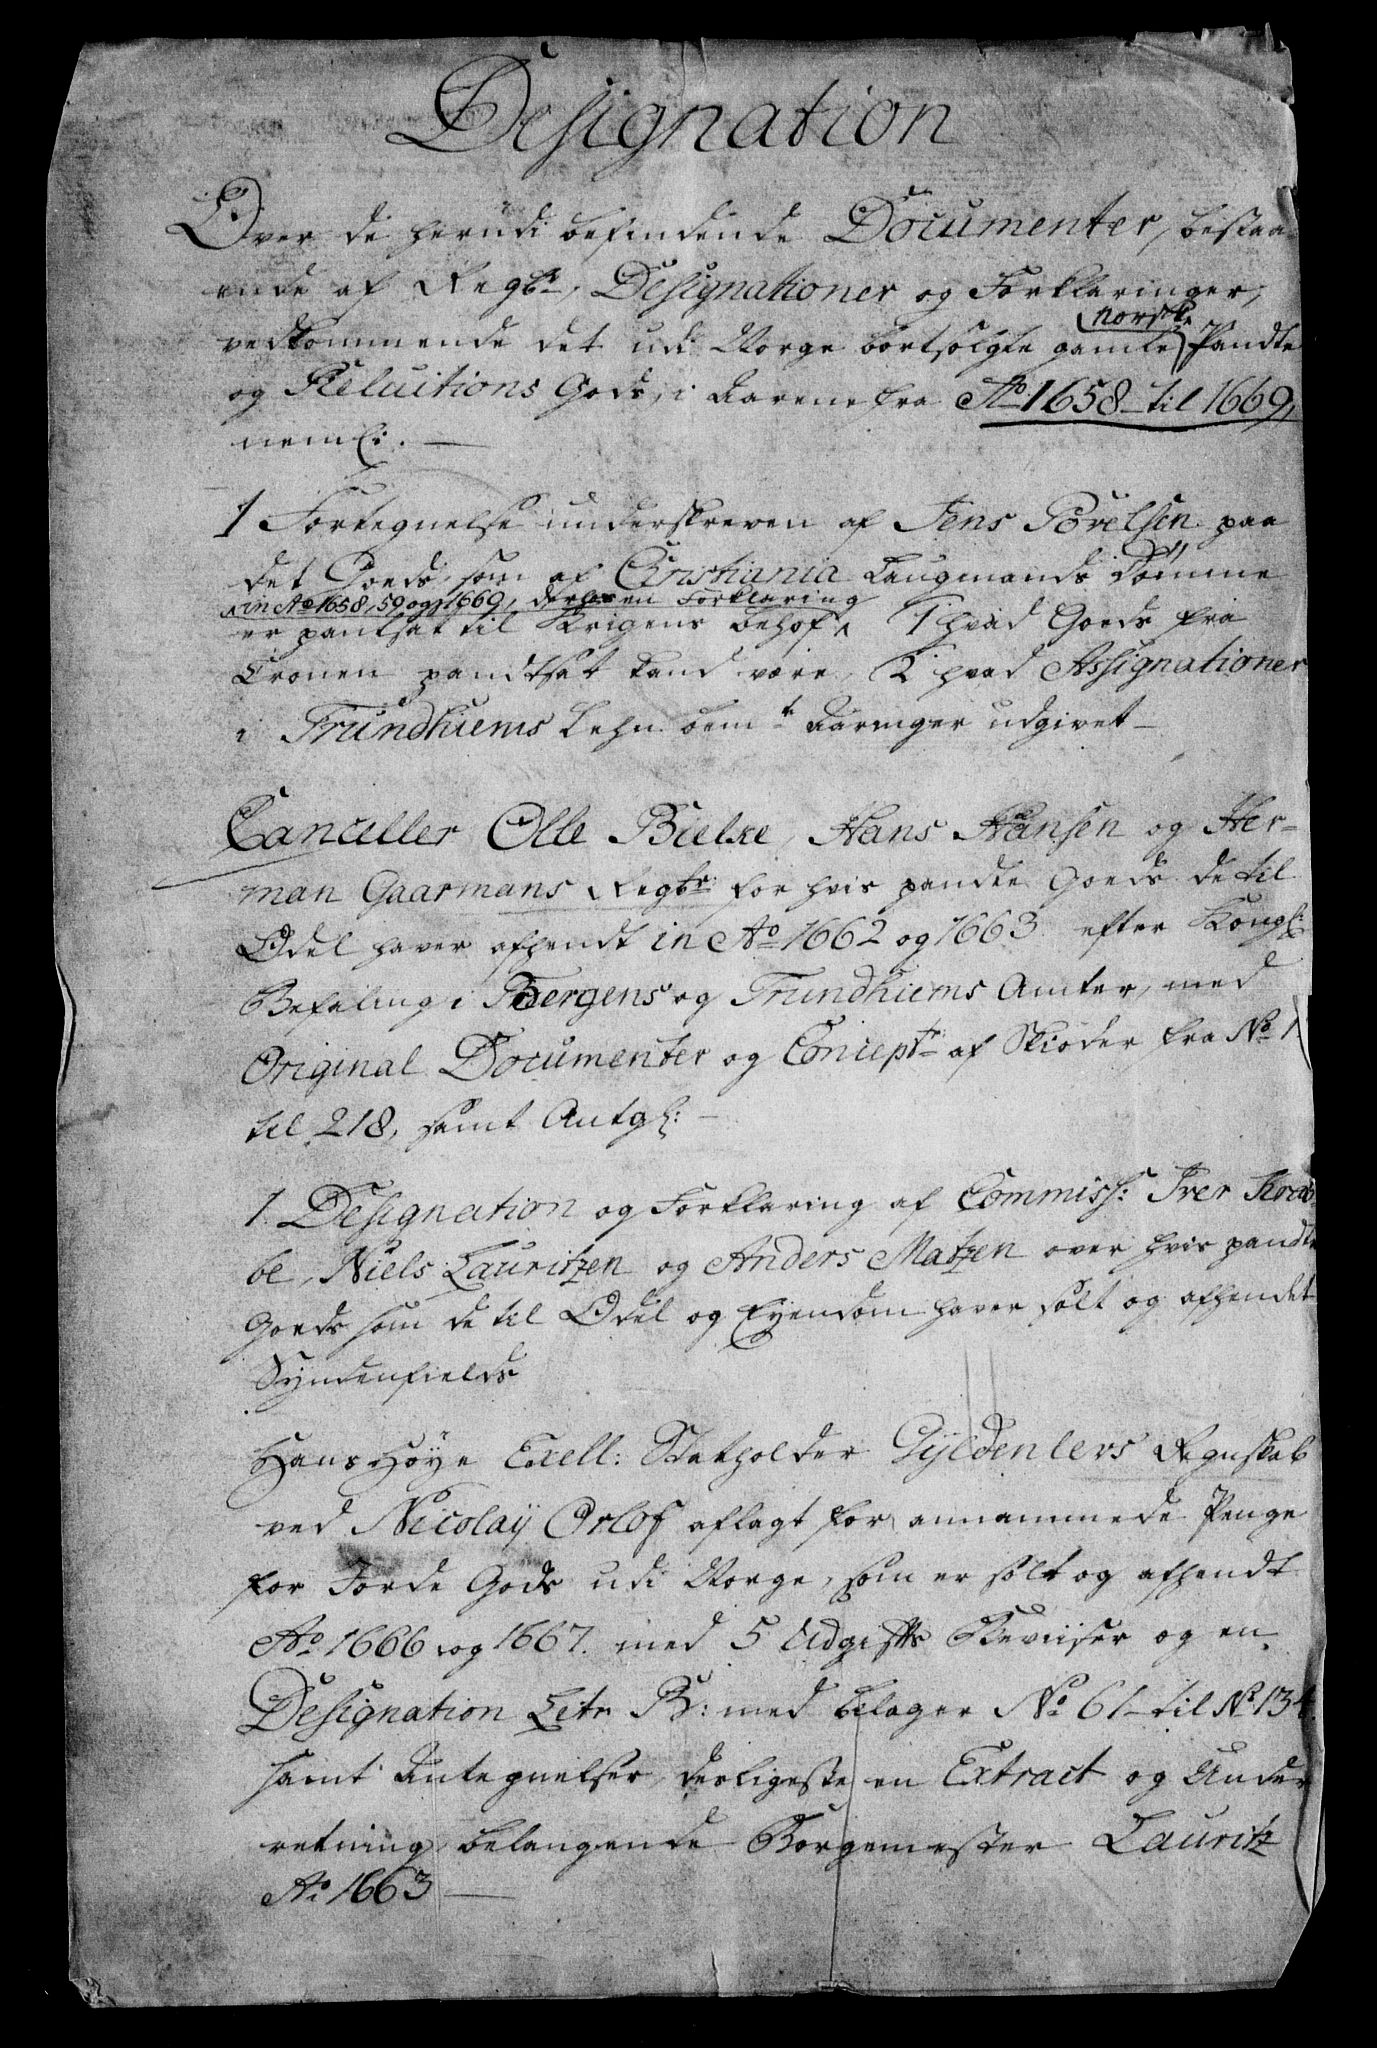 Designation
Over de herudi befindende Documenter, bestaa-
ende af Regbr. Designationer og Forklaringer,
vedkommende det udi Norge bortsolgte gamle norske Pandte
og Reluitions Gods, i Aarene fra Ao 1658 til 1669,
nemlig.
1 Fortegnelse underskreven af Jens Povelsen paa
det Goeds, som af Christiania Laugmands Dømme
in Ao 1658, 59 og 1669, derhos en Forklaring
er pantsat til Krigens behof, 1 hvad Goeds fra
Cronen pandtsat kand være, 2 hvad Assignationer
i Trundhiems Lehn bemte Aaringer udgivet
Canceller Olle Bielke, Hans Hansen og Her-
man Gaarmans Regbr for hvis pandte Goeds de til
Odel haver afhendt in Ao 1662 og 1663 efter Kongl:
Befaling i Bergens og Trundhiems Amter, med
Original Documenter og Conceptr af Skiøder fra No 1
til 218, samt Antgl:
1. Designation og Forklaring af Commiss: Iver Krab-
be, Niels Lauritzen og Anders Matzen over hvis pandte
Goeds som de til Odel og Eyendom haver solt og afhendet
Syndenfields
Hans Høye Exell: Statholder Gyldenlevs Regnskab
ved Nicolaij Orlof aflagt for annammede Penge
for Jorde Gods udi Norge, som er solt og afhendt
Ao 1666 og 1667. med 5 Udgifts Beviiser og en
Designation Litr B: med bilager No 61 til No 134.
samt Antegnelser, desligeste en Extract og Under
retning, belangende Borgemester Lauritz
Ao 1663